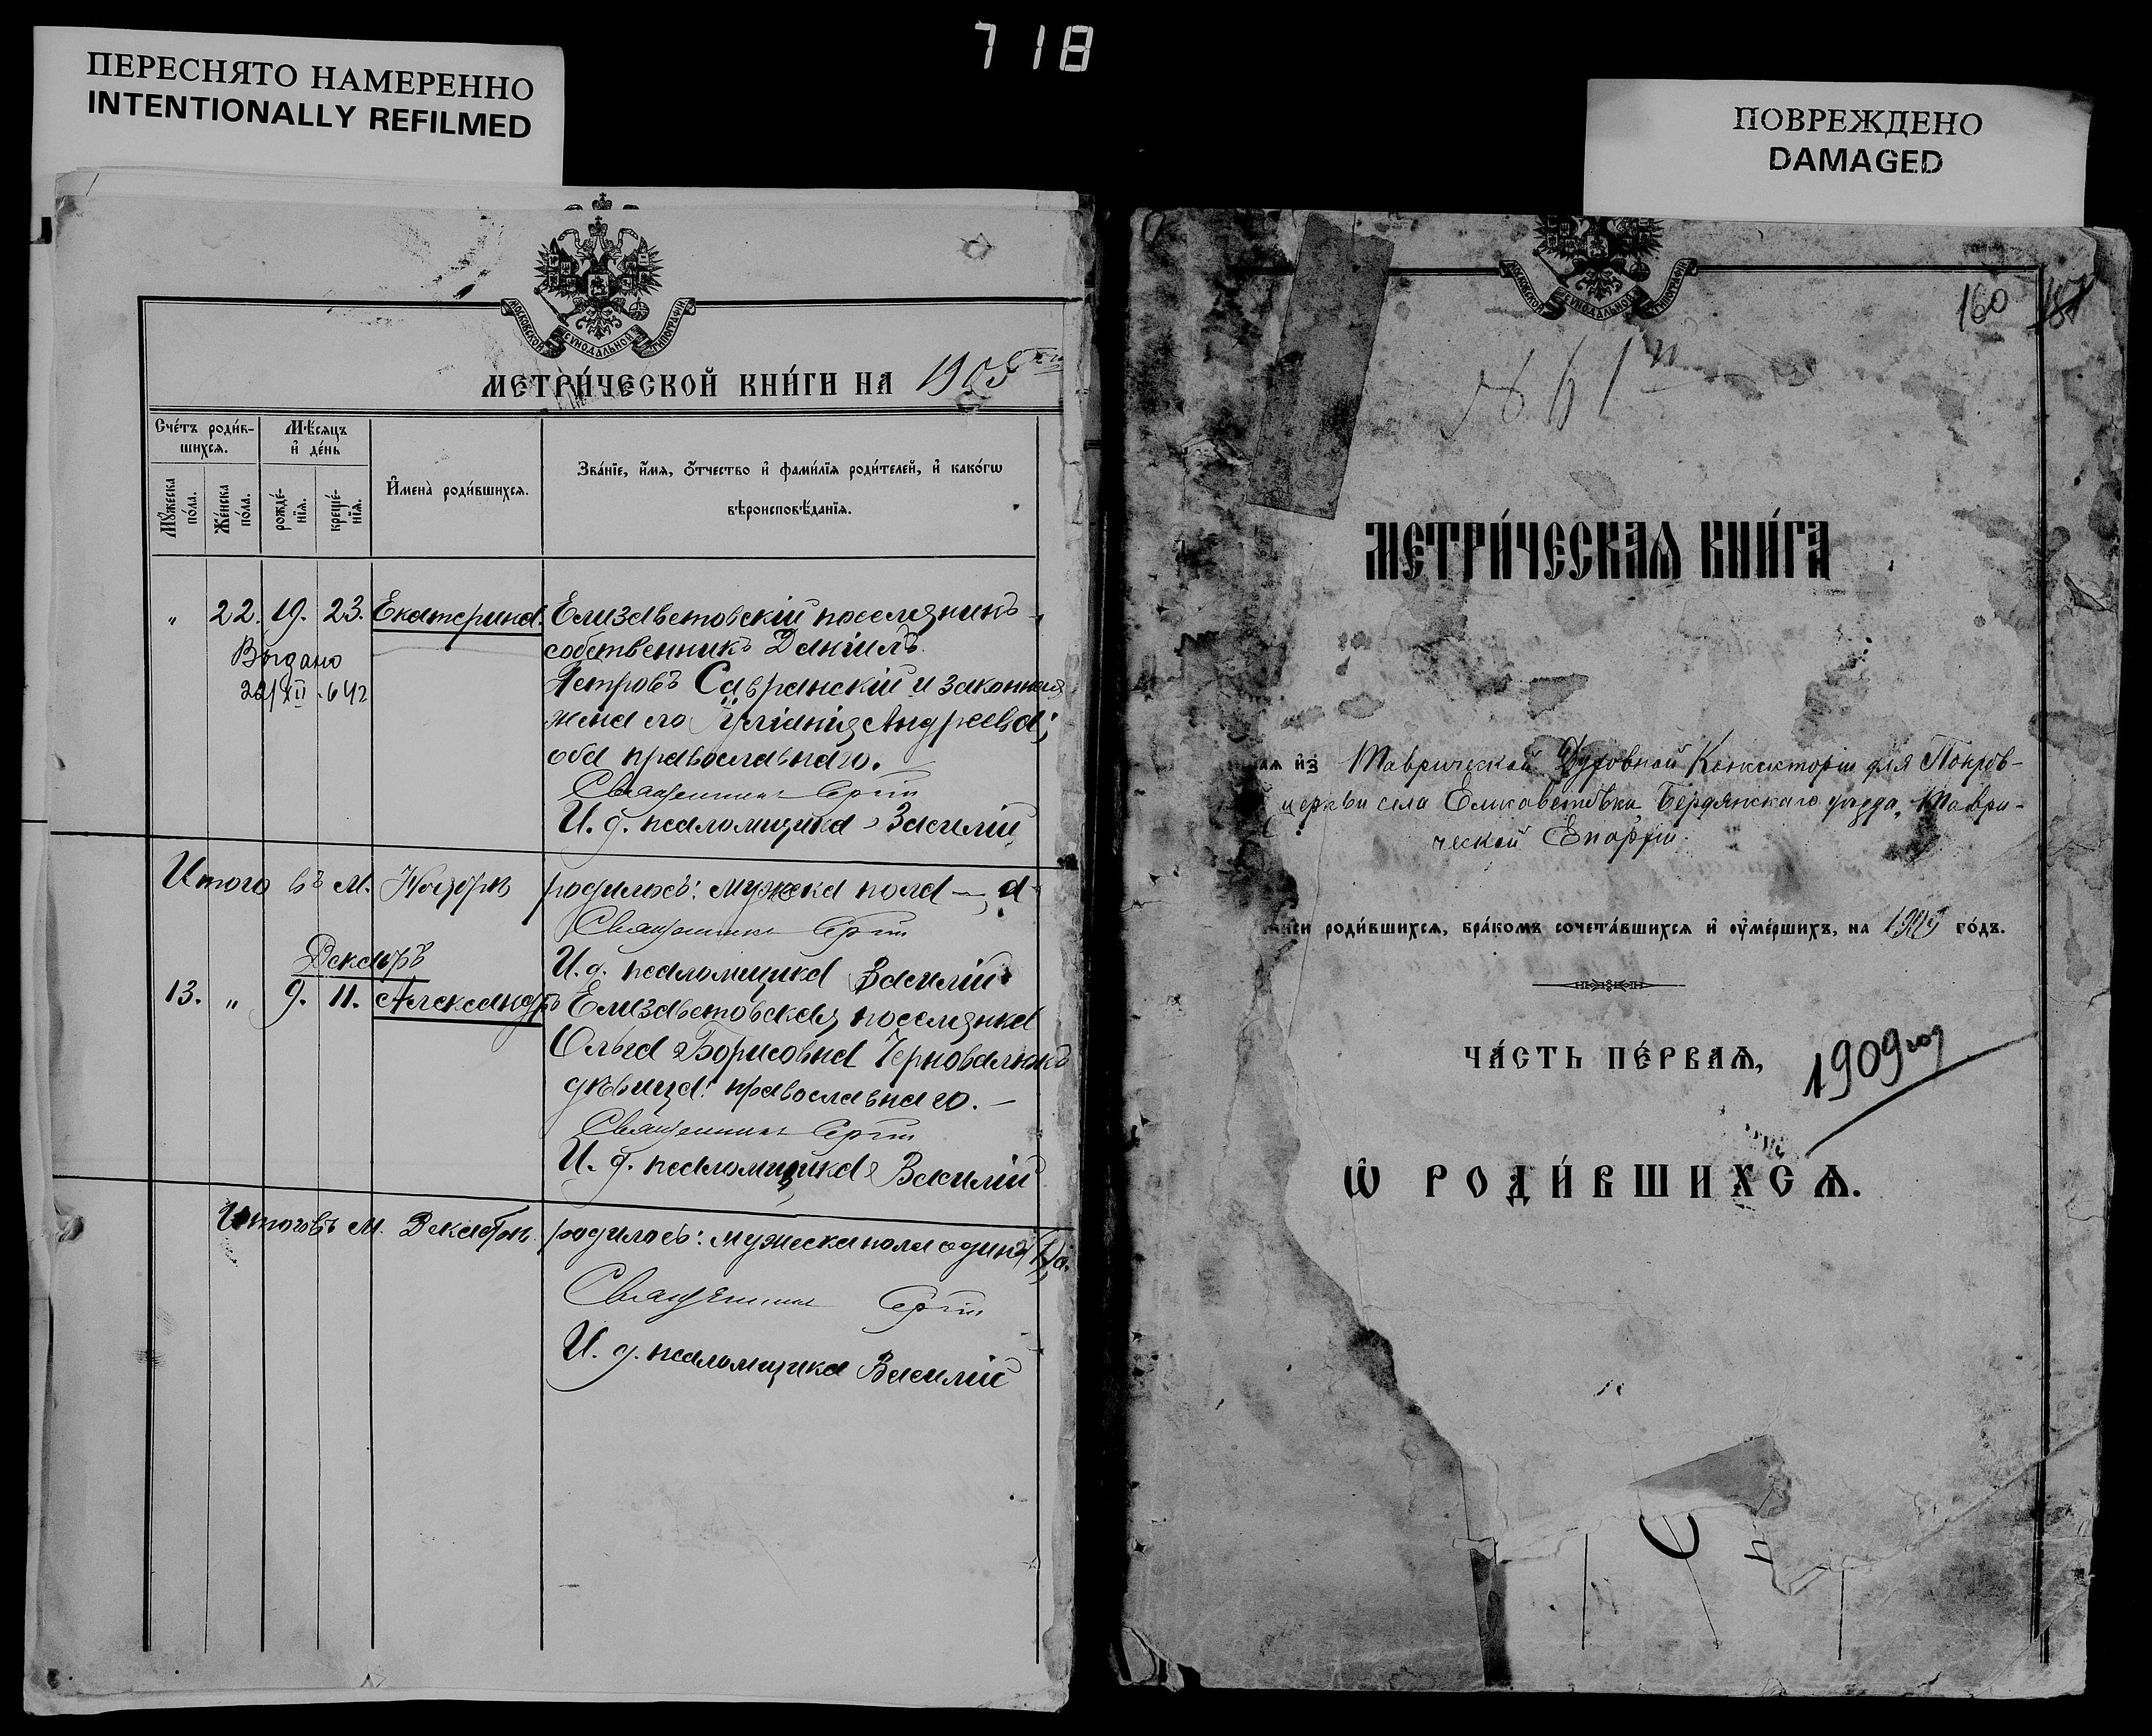 718
ПЕРЕСНЯТО НАМЕРЕННО
INTENTIONALLY REFILMED
МОСКОВСКОЙ СѴНОДАЛЬНОЙ ТИПОГРАФІИ
МЕТРИ́ЧЕСКОЙ КНИ́ГИ НА 1905
Сче́тъ роди́в-
шихсѧ.
Мѣ́сѧцъ
и҆ де́нь
Мꙋ́жеска
по́ла.
Же́нска
по́ла.
рожде́-
нїѧ.
креще́-
нїѧ.
И҆мена̀ роди́вшихсѧ.
Зва́нїе, и҆́мѧ, ѻ҆́тчество и҆ фами́лїѧ роди́телей, и҆ како́гѡ
вѣроисповѣ́данїѧ.
" 22. 19. 23. Екатерина. Елизаветовскій поселянинъ-
собственникъ Даніилъ
Выдано
22/XII-642
Петровъ Савранскій и законная
жена его Іуліанія Андреева;
оба православнаго.
Священникъ Сергій
И. д. псаломщика Василій
Итого въ м. Ноябрѣ родилось: мужеска пола —
Священникъ Сергій
И. д. псаломщика Василій
Декабрь
13. " 9. 11. Александръ Елизаветовская поселянка
Ольга Борисовна
дѣвица: православнаго. —
Священникъ Сергій
И. д. псаломщика Василій
Итого въ м. Декабрѣ родилось: мужеска пола одинъ
Священникъ Сергій
И. д. псаломщика Василій
ПОВРЕЖДЕНО
DAMAGED
МОСКОВСКОЙ СѴНОДАЛЬНОЙ ТИПОГРАФІИ
160
МЕТРИ́ЧЕСКАѦ КНИ́ГА
аѧ и҆з Таврической Духовной Консисторіи для Покров-
церкви села Елисаветовки, Бердянскаго уѣзда, Таври-
ческой Епархіи.
роди́вшихсѧ, бра́комъ сочета́вшихсѧ и҆ ᲂу҆ме́ршихъ, на 1909 го́дъ.
ЧА́СТЬ ПЕ́РВАѦ,
1909 год
Ѡ҆ РОДИ́ВШИХСѦ.